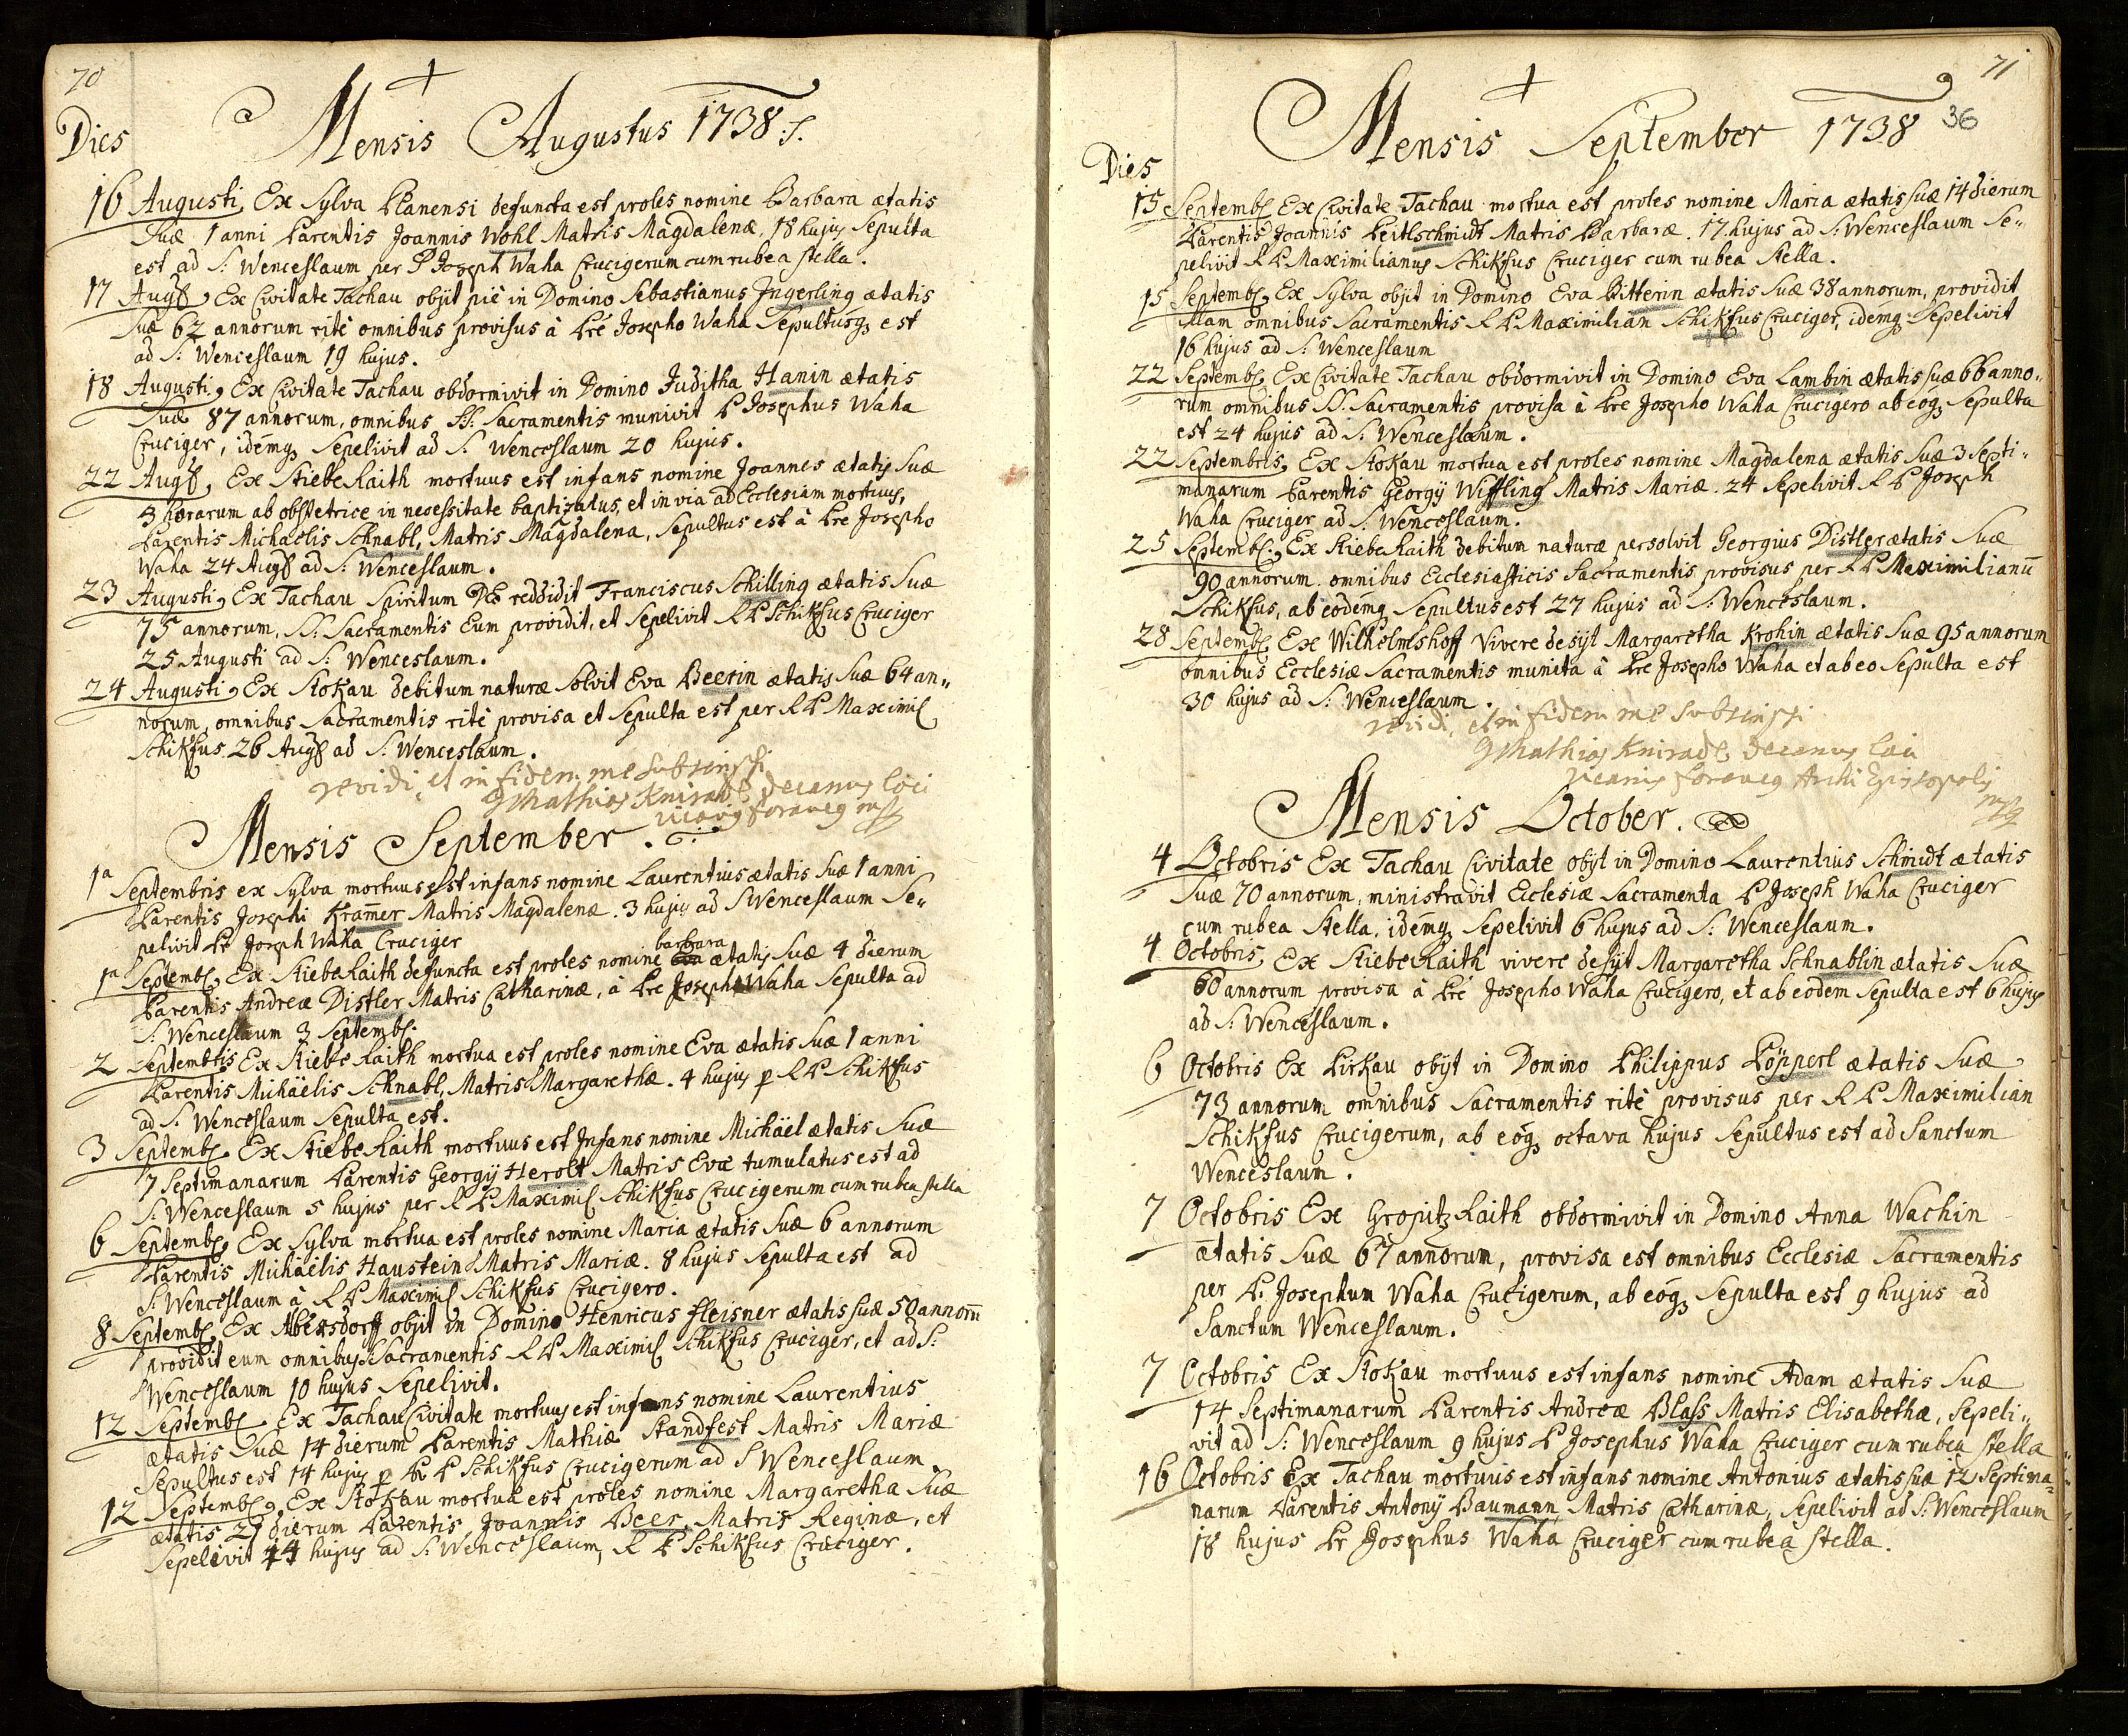 70
Mensis Augustus 1738 :/.
Dies
16 Augusti, Ex Sylva Planensi defuncta est proles nomine Barbara ætatis
Suæ 1 anni Parentis Joannis Wohl Matris Magdalenæ, 18 hujus Sepulta
est ad S: Wenceslaum per P Joseph Waha Crucigerum cum rubea stella.
17 Aug9, Ex Civitate Tachau obijt piè in Domino Sebastianus Ingerling ætatis
Suæ 62 annorum ritè omnibus provisus à Pre Josepho Waha Sepultusq3 est
ad S: Wenceslaum 19 hujus.
18 Augusti, Ex Civitate Tachau obdormivit in Domino Juditha Hanin ætatis
Suæ 87 annorum, omnibus SS: Sacramentis munivit P Josephus Waha
Cruciger, idemq3 Sepelivit ad S: Wenceslaum 20 hujus.
22 Aug9, Ex Stiebe Raith mortuus est infans nomine Joannes ætatis Suæ
3 horarum ab obstetrice in necessitate baptizatus, et in via ad Ecclesiam mortuus,
Parentis Michaelis Schnabl, Matris Magdalena, Sepultus est à Pre Josepho
Waha 24 Aug9 ad S: Wenceslaum.
23 Augusti, Ex Tachau Spiritum DEo reddidit Franciscus Schilling ætatis Suæ
75 annorum, SS: Sacramentis Eum providit, et Sepelivit R P Schikfus Cruciger
25 Augusti ad S: Wenceslaum.
24 Augusti, Ex Stokau debitum naturæ Solvit Eva Beerin ætatis Suæ 64 an„
norum, omnibus Sacramentis ritè provisa et Sepulta est per R P Maximil
Schikfus 26 Aug9 ad S: Wenceslaum.
revidi, et in fidem me subscripsi
Mathias Kniradl, Decanus loci
vicarius foraneus mp
Mensis September.
1a Septembris ex Sylva mortuus est infans nomine Laurentius ætatis Suæ 1 anni
Parentis Josephi Kramer Matris Magdalenæ. 3 hujus ad S Wenceslaum Se„
pelivit Pr Joseph Waha Cruciger
barbara
1a Septemb, Ex Stiebe Raith defuncta est proles nomine ætatis Suæ 4 dierum
Parentis Andreæ Distler Matris Catharinæ, à Pre Josepho Waha Sepulta ad
S: Wenceslaum 3 Septemb.
2 Septembris Ex Stiebe Raith mortua est proles nomine Eva ætatis Suæ 1 anni
Parentis Michäelis Schnabl, Matris Margarethæ. 4 hujus p R P Schikfus
ad S: Wenceslaum Sepulta est.
3 Septemb, Ex Stiebe Raith mortuus est Infans nomine Michäel ætatis Suæ
7 Septimanarum Parentis Georgij Herolt Matris Evæ tumulatus est ad
S: Wenceslaum 5 hujus per R P Maximil Schikfus Crucigerum cum rubea stella
6 Septemb, Ex Sylva mortua est proles nomine Maria ætatis Suæ 6 annorum
Parentis Michäelis Haustein Matris Mariæ. 8 hujus Sepulta est ad
S: Wenceslaum à R P Maximil Schikfus Crucigero.
8 Septemb, Ex Albersdorff obijt in Domino Henricus fleisner ætatis Suæ 50 annorū
providit eum omnibus Sacramentis R P Maximil Schikfus Cruciger, et ad S:
Wenceslaum 10 hujus Sepelivit.
12 Septemb, Ex Tachau Civitate mortuus est infans nomine Laurentius
ætatis Suæ 14 dierum Parentis Mathiæ Standfest Matris Mariæ
Sepultus est 14 hujus p R P Schikfus Crucigerum ad S Wenceslaum.
12 Septemb, Ex Stokau mortua est proles nomine Margaretha Suæ
ætatis 21 dierum Parentis Joannis Beer Matris Reginæ, et
Sepelivit 14 hujus ad S: Wenceslaum, R P Schikfus Cruciger.
71
36
Mensis September 1738
Dies
15 Septemb, Ex Civitate Tachau mortua est proles nomine Maria ætatis Suæ 14 dierum
Parentis Joannis Peitlschmidt Matris Barbaræ. 17. hujus ad S: Wenceslaum Se„
pelivit R P Maximilianus Schikfus Cruciger cum rubea Stella.
15 Septemb, Ex Sylva obijt in Domino Eva Bitterin ætatis Suæ 38 annorum, providit
illam omnibus Sacramentis R P Maximilian Schikfus Cruciger, idemq3 Sepelivit
16 hujus ad S: Wenceslaum
22 Septemb, Ex Civitate Tachau obdormivit in Domino Eva Lambin ætatis Suæ 66 anno„
rum omnibus SS. Sacramentis provisa à Pre Josepho Waha Crucigero ab eoq3 Sepulta
est 24 hujus ad S: Wenceslaum.
22 Septembris, Ex Stokau mortua est proles nomine Magdalena ætatis Suæ 3 Septi„
manarum Parentis Georgij Wiffling Matris Mariæ. 24 Sepelivit R P Joseph
Waha Cruciger ad S: Wenceslaum.
25 Septemb., Ex Stiebe Raith debitum naturæ persolvit Georgius Distler ætatis Suæ
90 annorum. omnibus Ecclesiasticis Sacramentis provisus per R P Maximilianū
Schikfus, ab eodemq Sepultus est 27 hujus ad S: Wenceslaum.
28 Septemb, Ex Wilhelmshoff Vivere desijt Margaretha Krohin ætatis Suæ 95 annorum
omnibus Ecclesiæ Sacramentis munita à Pre Josepho Waha et ab eo Sepulta est
30 hujus ad S: Wenceslaum.
revidi, et in fidem me subscripsi
Mathias Kniradl, Decanus loci
vicarius foraneus Archi Episcopalis
mp
Mensis October.
4 Octobris Ex Tachau Civitate obijt in Domino Laurentius Schmidt ætatis
Suæ 70 annorum, ministravit Ecclesiæ Sacramenta P Joseph Waha Cruciger
cum rubea Stella, idemq3 Sepelivit 6 hujus ad S: Wenceslaum.
4 Octobris, Ex Stiebe Raith vivere desijt Margaretha Schnablin ætatis Suæ
60 annorum provisa à Pre Josepho Waha Crucigero, et ab eodem Sepulta est 6 hujus
ad S: Wenceslaum.
6 Octobris Ex Pirkau obijt in Domino Philippus Löpperl ætatis Suæ
73 annorum omnibus Sacramentis ritè provisus per R P Maximilian
Schikfus Crucigerum, ab eoq3 octava hujus Sepultus est ad Sanctum
Wenceslaum.
7 Octobris Ex Grospitz Raith obdormivit in Domino Anna Wachin
ætatis Suæ 67 annorum, provisa est omnibus Ecclesiæ Sacramentis
per P. Josephum Waha Crucigerum, ab eoq3 Sepulta est 9 hujus ad
Sanctum Wenceslaum.
7 Octobris Ex Stokau mortuus est infans nomine Adam ætatis Suæ
14 Septimanarum Parentis Andreæ Blass Matris Elisabethæ, Sepeli„
vit ad S: Wenceslaum 9 hujus P Josephus Waha Cruciger cum rubea Stella
16 Octobris Ex Tachau mortuus est infans nomine Antonius ætatis suæ 12 Septima„
narum Parentis Antonij Baumann Matris Catharinæ, Sepelivit ad S: Wenceslaum
18 hujus Pr Josephus Waha Cruciger cum rubea stella.